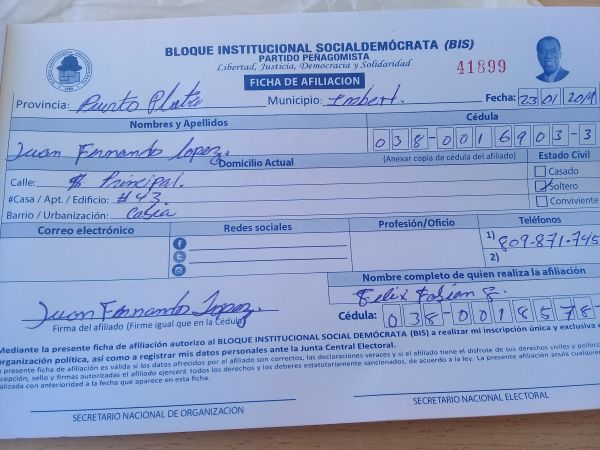 BLOQUE INSTITUCIONAL SOCIALDEMÓCRATA (BIS)
PARTIDO PEÑAGOMISTA
Libertad, Justicia, Democracia y Solidaridad
41899
FICHA DE AFILIACION
Provincia: Puerto Plata Municipio: Imbert. Fecha: 23 01 2019
Nombres y Apellidos Cédula
Juan Fernando Lopez. 038-0016903-3
Domicilio Actual (Anexar copia de cédula del afiliado) Estado Civil
Calle: Principal. Casado
#Casa / Apt. / Edificio: #43. Soltero
Barrio / Urbanización: Conviviente
Correo electrónico Redes sociales Profesión/Oficio Teléfonos
1) 809-871-745
2)
Nombre completo de quien realiza la afiliación
Juan Fernando Lopez. Felix Fabian
Firma del afiliado (Firme igual que en la Cédula) Cédula: 038-0018578-
Mediante la presente ficha de afiliación autorizo al BLOQUE INSTITUCIONAL SOCIAL DEMÓCRATA (BIS) a realizar mi inscripción única y exclusiva
organización política, así como a registrar mis datos personales ante la Junta Central Electoral.
presente ficha de afiliación es válida si los datos ofrecidos por el afiliado son correctos, las declaraciones veraces y si el afiliado tiene el disfrute de sus derechos civiles y
cepción, sello y firmas autorizadas el afiliado ejercerá todos los derechos y los deberes estatutariamente sancionados, de acuerdo a la ley. La presente afiliación anula cualquier
realizada con anterioridad a la fecha que aparece en esta ficha.
SECRETARIO NACIONAL DE ORGANIZACIÓN SECRETARIO NACIONAL ELECTORAL